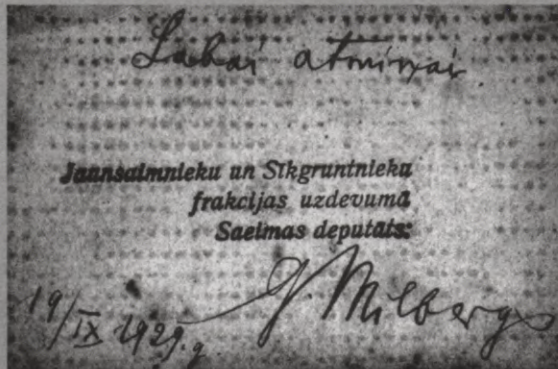 Labai atmiņai
Jaunsaimnieku un Sīkgruntnieku
frakcijas uzdevumā
Saeimas deputāts:
G. Milbergs
19/IX 1929. g.